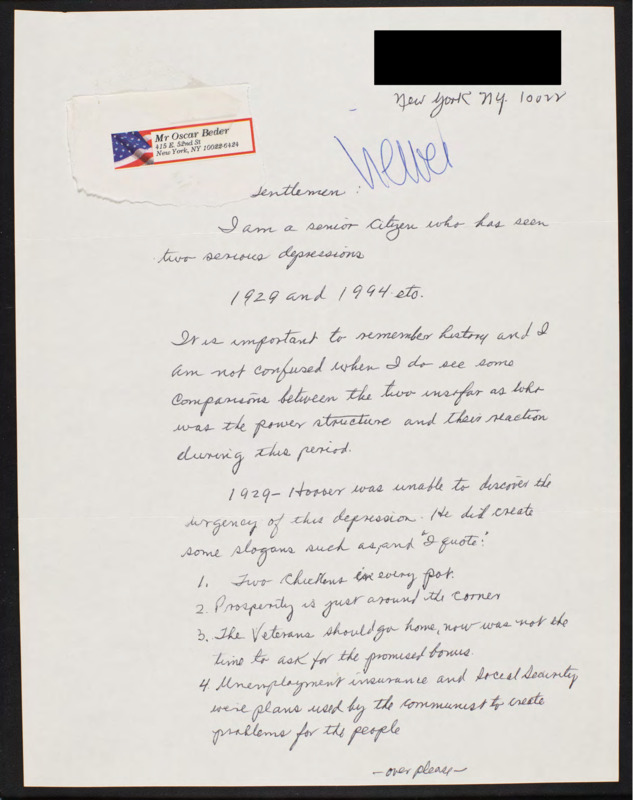 New York NY. 10022
Mr Oscar Beder
415 E. 52nd St
New York, NY 10022-6424
Gentlemen:
I am a senior citizen who has seen
two serious depressions
1929 and 1994 etc.
It is important to remember history and I
am not confused when I do see some
comparisons between the two insofar as who
was the power structure and their reaction
during this period.
1929 - Hoover was unable to discover the
urgency of this depression. He did create
some slogans such as, and "I quote:"
1. Two chickens in every pot.
2. Prosperity is just around the corner
3. The Veterans should go home, now was not the
time to ask for the promised bonus.
4 Unemployment insurance and Social Security
were plans used by the communist to create
problems for the people
- over please -